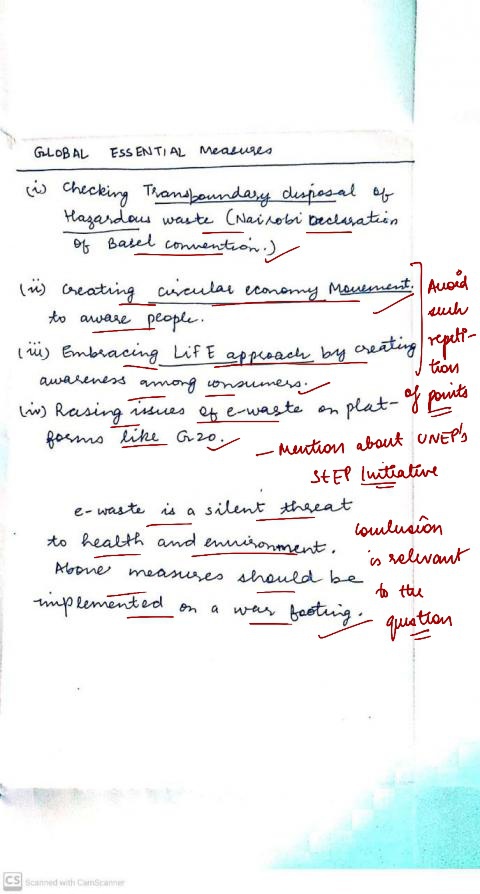 GLOBAL ESSENTIAL Measures
(i) Checking Transboundary disposal of
Hazardous waste (Nairobi Declaration
of Basel convention.)
(ii) Creating circular economy Movement.
to aware people.
(iii) Embracing LiFE approach by creating
awareness among consumers.
Avoid
such
repiti-
tion
of points
(iv) Raising issues of e-waste on plat-
forms like G20.
- Mention about UNEP's
StEP Initiative
e-waste is a silent threat
to health and environment.
Above measures should be
implemented on a war footing.
Conclusion
is relevant
to the
question
CS Scanned with CamScanner